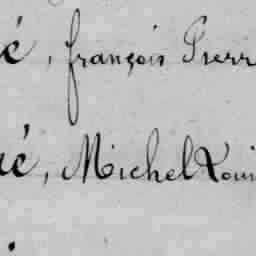 é, françois Pierr
ué, Michel Loui